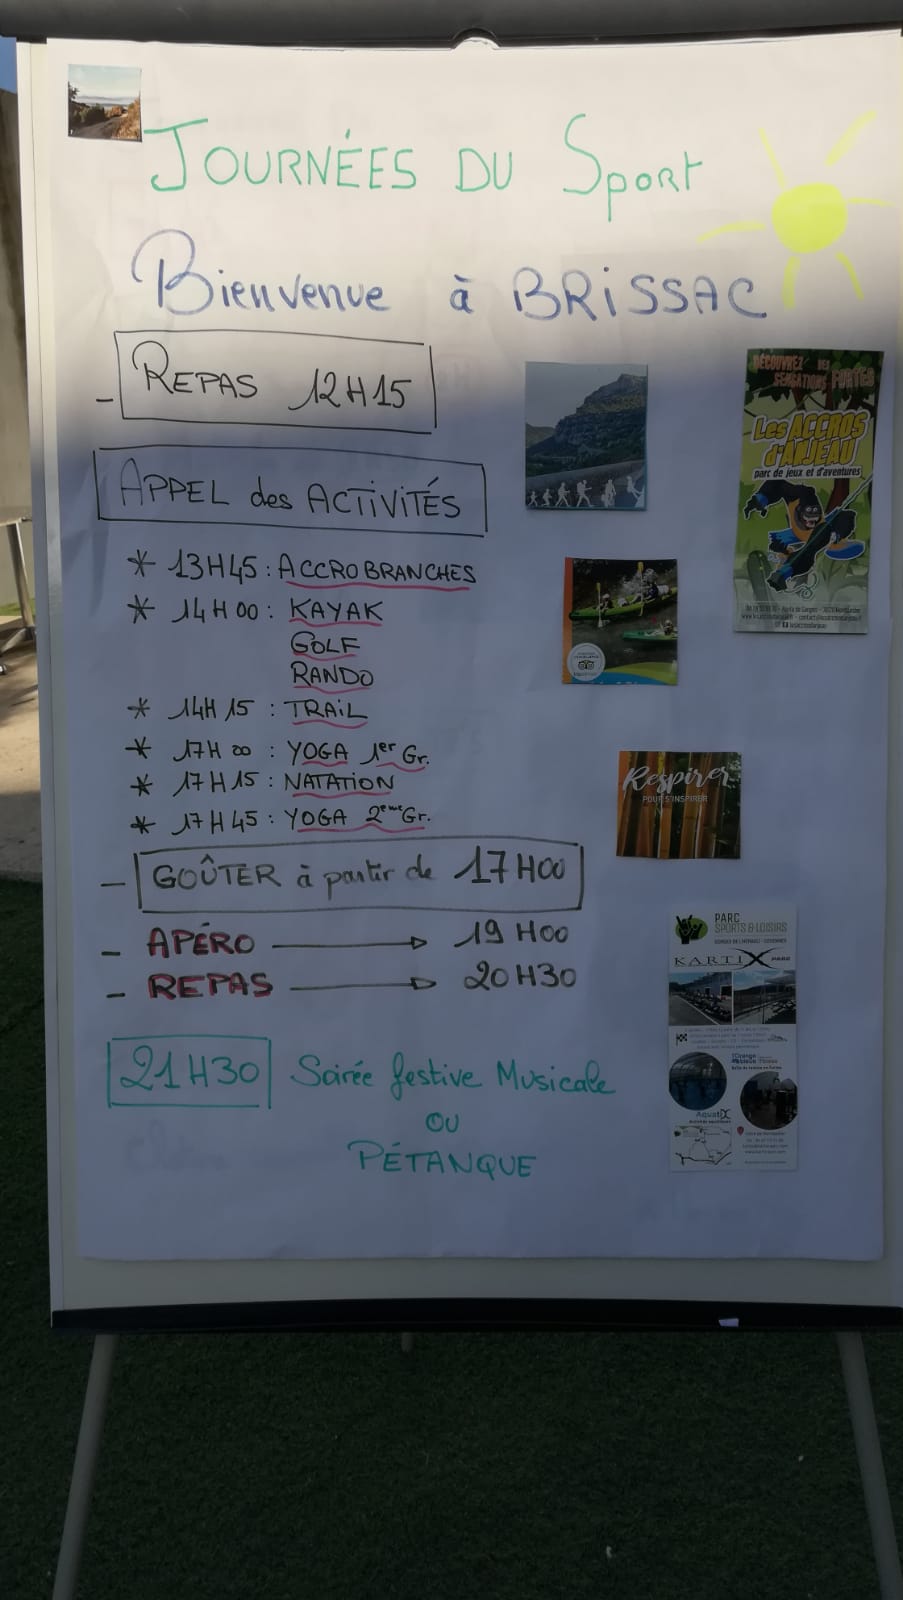 JOURNÉES DU SPORT
Bienvenue à BRISSAC
- REPAS 12H15
APPEL des ACTIVITÉS
* 13H45 : ACCROBRANCHES
* 14H00 : KAYAK
GOLF
RANDO
* 14H15 : TRAIL
* 17H00 : YOGA 1er Gr.
* 17H15 : NATATION
* 17H45 : YOGA 2eme Gr.
- GOÛTER à partir de 17H00
- APÉRO → 19H00
- REPAS → 20H30
21H30 Soirée festive Musicale
OU
PÉTANQUE
DÉCOUVREZ DES
SENSATIONS FORTES
Les ACCROS
d'ANJEAU
parc de jeux et d'aventures
Respirer
POUR S'INSPIRER
PARC
SPORTS & LOISIRS
KARTIX PARC
AquatiX